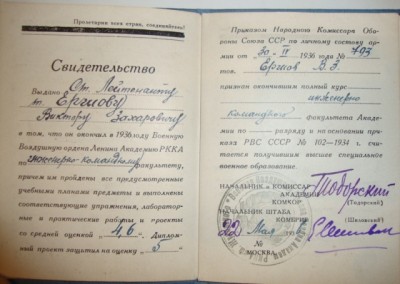 Пролетарии всех стран, соединяйтесь!
Свидетельство
Выдано Ст. Лейтенанту
т. Ергиову
Виктору Захаровичу
в том, что он окончил в 1936 году Военную
Воздушную ордена Ленина Академию РККА
по инженерно-командному факультету,
причем им пройдены все предусмотренные
учебными планами предметы и выполнены
соответствующие упражнения, лаборатор-
ные и практические работы и проекты
со средней оценкой „4,6". Диплом-
ный проект защитил на оценку „5"
Приказом Народного Комиссара Обо-
роны Союза ССР по личному составу ар-
мии от 20-IV 1936 года № 793
тов. Ергиов В.З.
признан окончившим полный курс
инженерно
командного факультета Акаде-
мии по — разряду и на основании при-
каза РВС СССР № 102—1934 г. счи-
тается получившим высшее специальное
военное образование.
НАЧАЛЬНИК и КОМИССАР
АКАДЕМИИ
КОМКОР Тодорский
(Тодорский)
НАЧАЛЬНИК ШТАБА
КОМБРИГ
22 Мая 193
№
МОСКВА